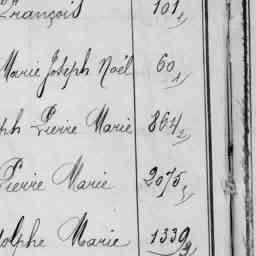 François 101 1
Marie Joseph Noël 60 1
ph Pierre Marie 864 2
Pierre Marie 2075 3
dolphe Marie 1339 3